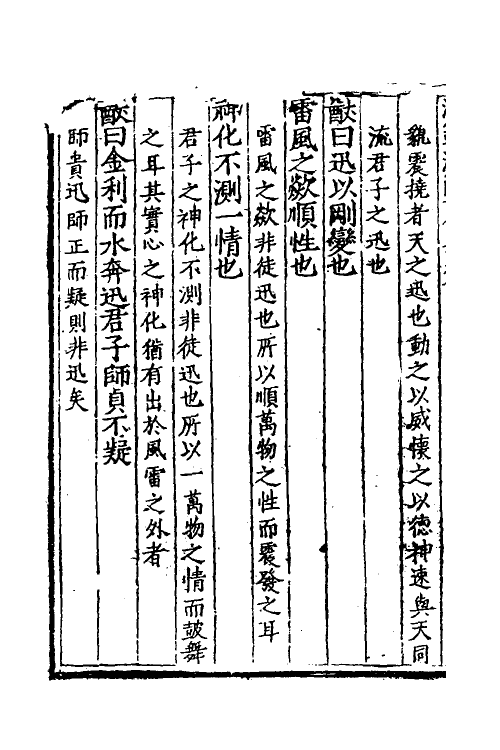 執震撓者天之迅也動之以威懷之以德神速與天同
流君子之迅也
猷曰迅以剛變也
雷風之歘順性也
雷風之歘非徒迅也所以順萬物之性而震發之耳
神化不測一情也
君子之神化不測非徒迅也所以一萬物之情而鼓舞
之耳其實心之神化猶有出於風雷之外者
猷曰金利而水奔迅君子師貞不疑
師貴迅師正而疑則非迅矣